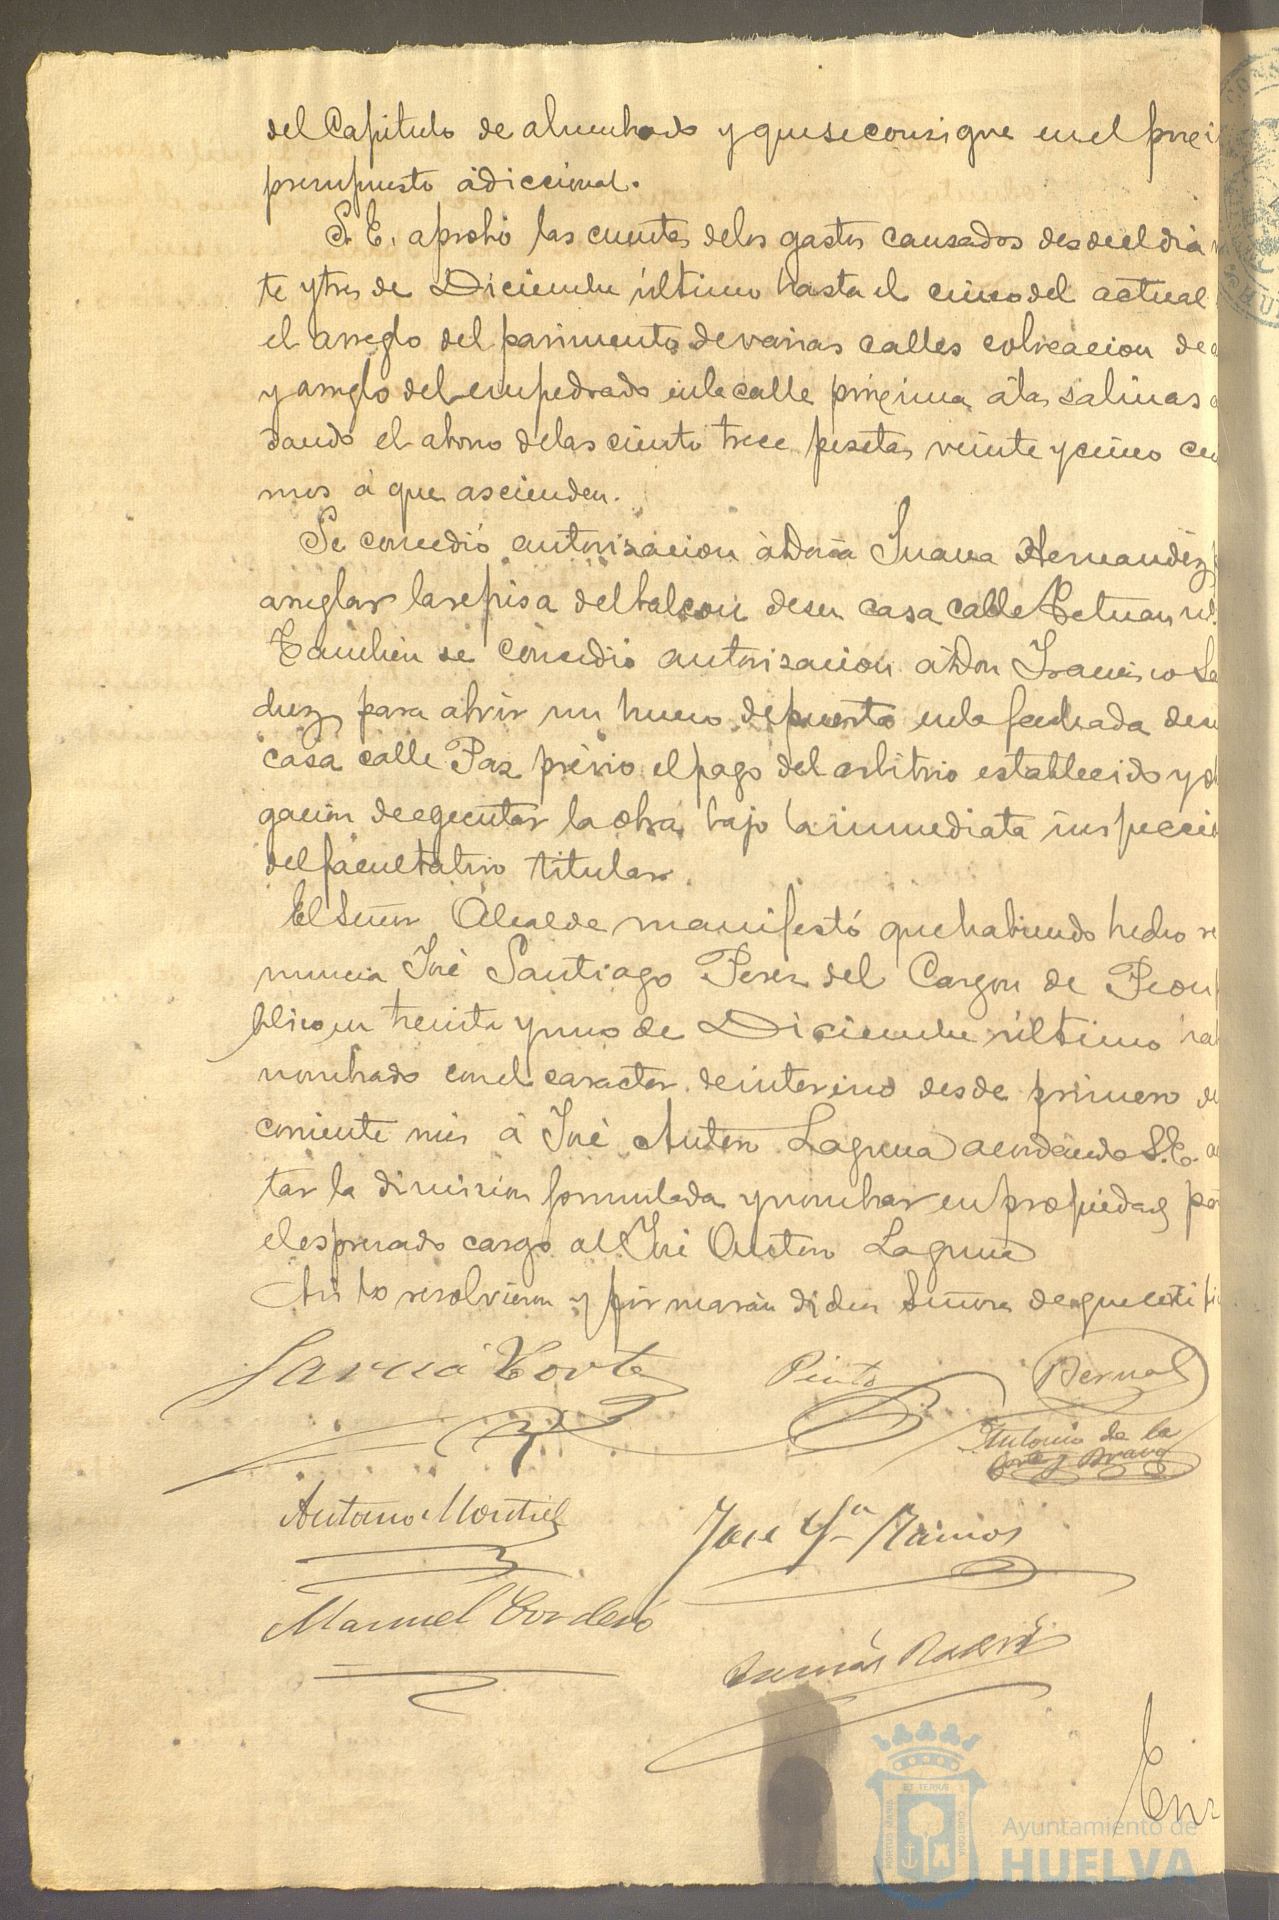 del Capitulo de alumbrado y que se consigne en el proxi
presupuesto adiccional.
S. E. aprobó las cuentas de los gastos causados desde el dia
te y tres de Diciembre último hasta el cinco del actual
el arreglo del pavimento de varias calles colocacion de
y arreglo del empedrado en la calle próxima á las Salinas
dando el abono de las ciento trece pesetas veinte y cinco cen
mos á que ascienden.
Se concedió autorizacion á Doña Juana Hernandez
arreglar la repisa del balcon de su casa calle Tetuan nº.
Tambien se concedió autorizacion á Don Francisco
duz para abrir un hueco de puerta en la fachada de su
casa calle Paz prévio el pago del arbitrio establecido y obl
gacion de egecutar la obra bajo la inmediata inspeccio
del facultativo titular.
El Señor Alcalde manifestó que habiendo hecho re
nuncia José Santiago Perez del Cargon de Peon
blico en treinta y uno de Diciembre último hab
nombrado con el caracter de interino desde primero de
corriente mes á José Anton Laguna acordando S. E.
tar la dimision formulada y nombrar en propiedad pa
el espresado cargo al José Anton Laguna
Asi lo resolvieron y firmarán dichos Señores de que certi
Garcia Corte Pinto Bernal
Antonio de la
Corte y Bravo
Antonio Montiel José Mª Ramos
Manuel Cordero
Tomás
En
Ayuntamiento de
HUELVA